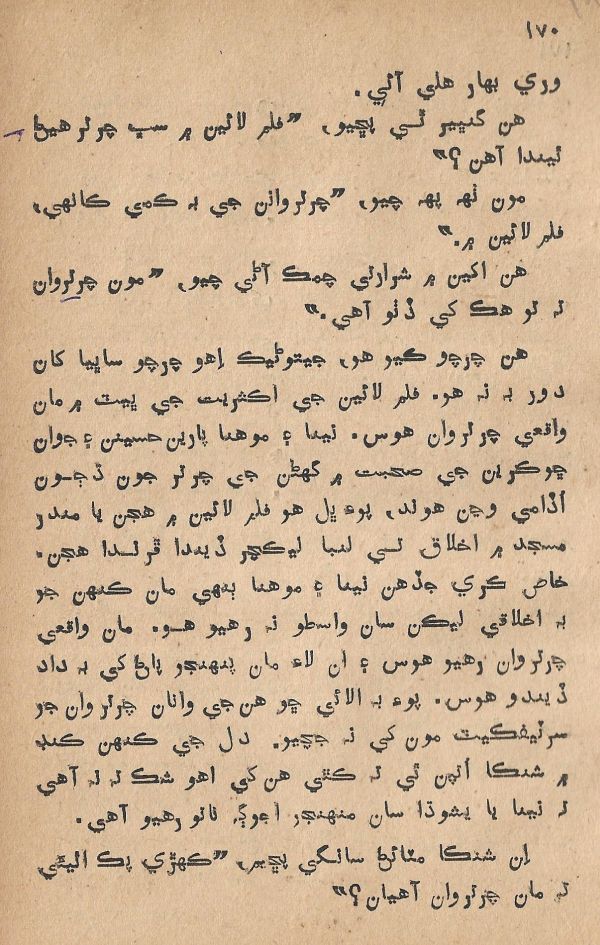 ۱۷۰
وري بهار هلي آئي.
هن گنڀير ٿي پڇيو، ”فلم لائين ۾ سڀ چرتر هيڻ
ٿيندا آهن؟“
مون ٺهه پهه چيو، ”چرتروانن جي به ڪمي ڪانهي،
فلم لائين ۾.“
هن اکين ۾ شرارتي چمڪ آڻي چيو، ”مون چرتروان
ته تو هڪ کي ڏٺو آهي.“
هن چرچو ڪيو هو، جيتوڻيڪ اِهو چرچو سڀيا کان
دور به نه هو. فلم لائين جي اڪثريت جي ڀيٽ ۾ مان
واقعي چرتروان هوس. نيتا ۽ موهنا پارين حسينن ۽ جوان
ڇوڪرين جي صحبت ۾ گهڻن جي چرتر جون ڌڄون
اُڏامي وڃن هوند، پوءِ ڀل هو فلم لائين ۾ هجن يا مندر
مسجد ۾ اخلاق تي لنبا ليڪچر ڏيندا ڦرندا هجن.
خاص ڪري جڏهن نيتا ۽ موهنا ٻنهي مان ڪنهن جو
به اخلاقي ليڪن سان واسطو نه رهيو هو. مان واقعي
چرتروان رهيو هوس ۽ ان لاءِ مان پنهنجو پاڻ کي به داد
ڏيندو هوس. پوءِ به الائي ڇو هن جي واتان چرتروان جو
سرٽيفڪيٽ مون کي نه جچيو. دل جي ڪنهن ڪنڊ
۾ شنڪا اُٿي ٿي ته ڪٿي هن کي اهو شڪ ته نه آهي
ته نيتا يا يشوڌا سان منهنجو اجوڳو ناتو رهيو آهي.
اِن شنڪا مٽائڻ سانگي پڇيم، ”ڪهڙي پڪ اٿيئي
ته مان چرتروان آهيان؟“